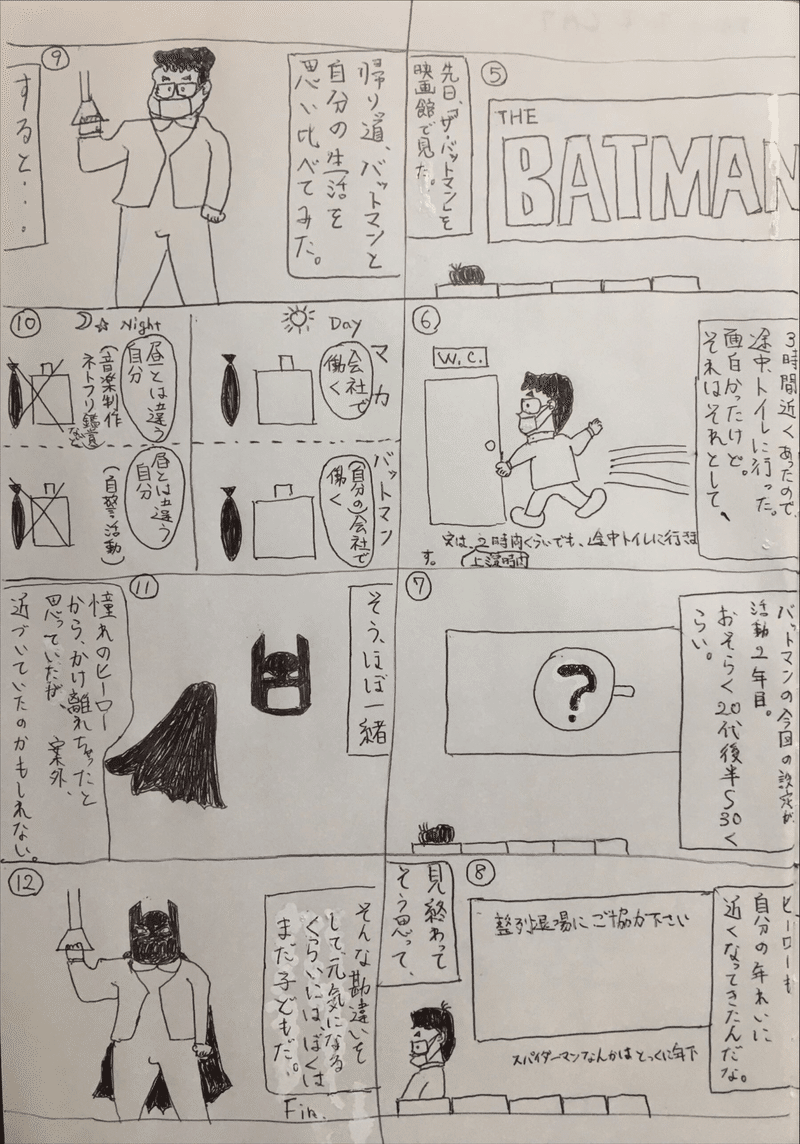 ⑤
先日、『ザ・バットマン』を
映画館で見た。
THE
BATMAN
⑥
3時間近くあったので、
途中、トイレに行った。
面白かったけど。
それはそれとして、
W.C.
実は、2時間くらいでも、途中トイレに行きま
す。
(上演時間)
⑦
バットマンの今回の設定が
活動2年目。
おそらく20代後半〜30く
らい。
?
⑧
ヒーローも
自分の年れいに
近くなってきたんだな。
整列退場にご協力下さい
スパイダーマンなんかはとっくに年下
見終わって
そう思って、
⑨
帰り道、バットマンと
自分の生活を
思い比べてみた。
すると・・・。
⑩
Day
マカ
会社で
働く
Night
昼とは違う
自分
(音楽制作
ネトフリ鑑賞
など)
バットマン
(自分の)会社で
働く
昼とは違う
自分
(自警活動)
⑪
そう、ほぼ一緒
憧れのヒーロー
から、かけ離れちゃったと
思っていたが、案外、
近づいていたのかもしれない。
⑫
そんな勘違いを
して、元気になる
くらいには、ぼくは
まだ子どもだ。
Fin.